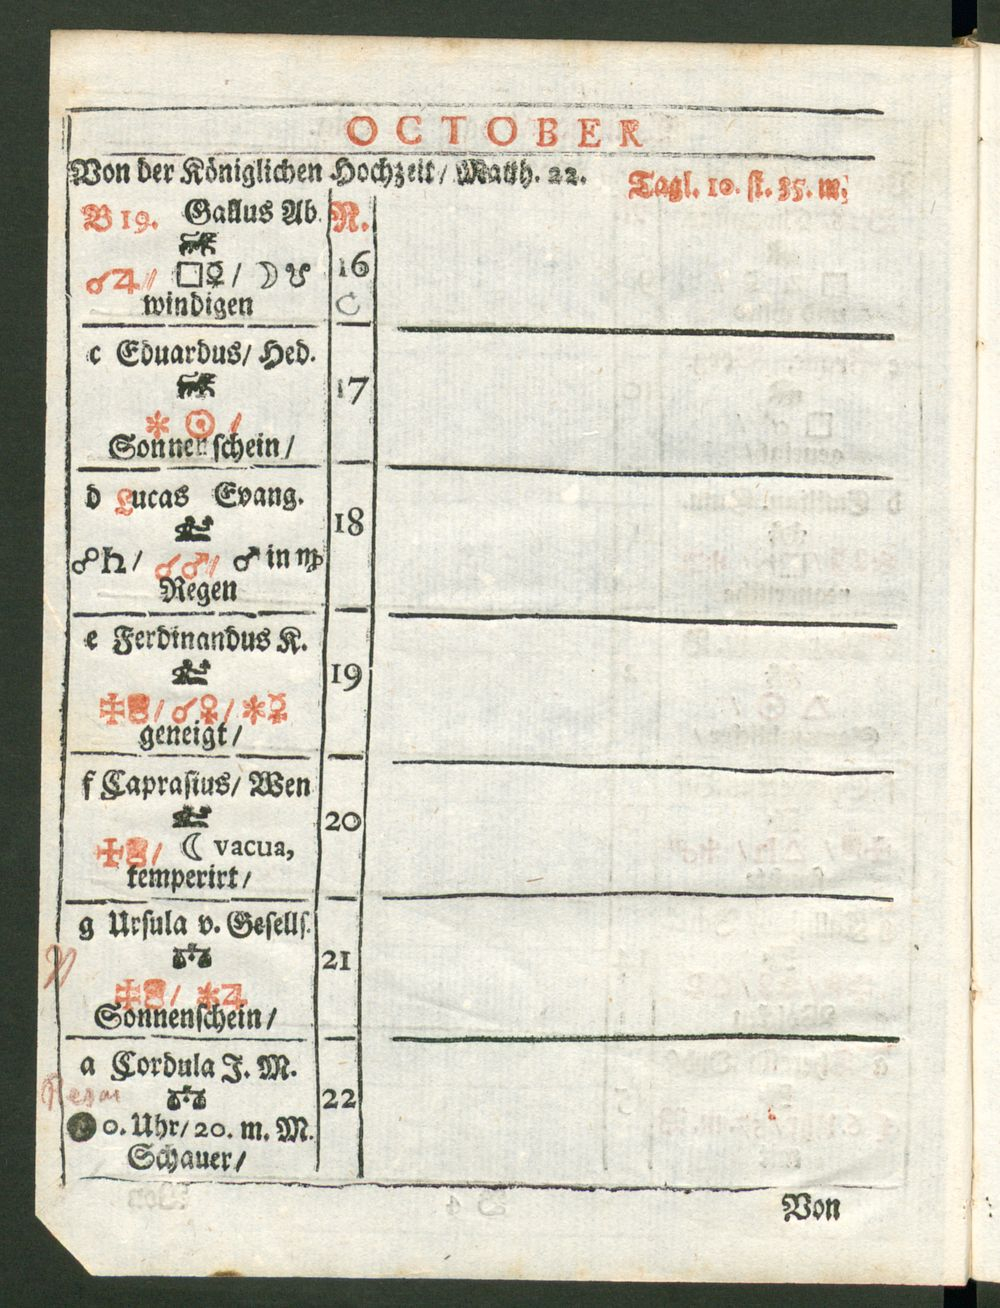 OCTOBER
Von der Königlichen Hochzeit/ Matth. 22.
Tagl. 10. st. 35. m.
B 19. Gallus Ab. N.
☌♃/ □☿/ ☽☋ 16
windigen C
c Eduardus/ Hed.
17
✱ ☉ /
Sonnenschein/
d Lucas Evang.
18
☍♄/ ☌♂/ ♂ in ♍
Regen
e Ferdinandus K.
19
☌♀/ ✱☿
geneigt/
f Caprasius/ Wen
20
☾ vacua,
temperirt/
g Ursula v. Gesells.
21
✱♃
Sonnenschein/
a Cordula J. M.
22
● 0. Uhr/ 20. m. M.
Schauer/
Von